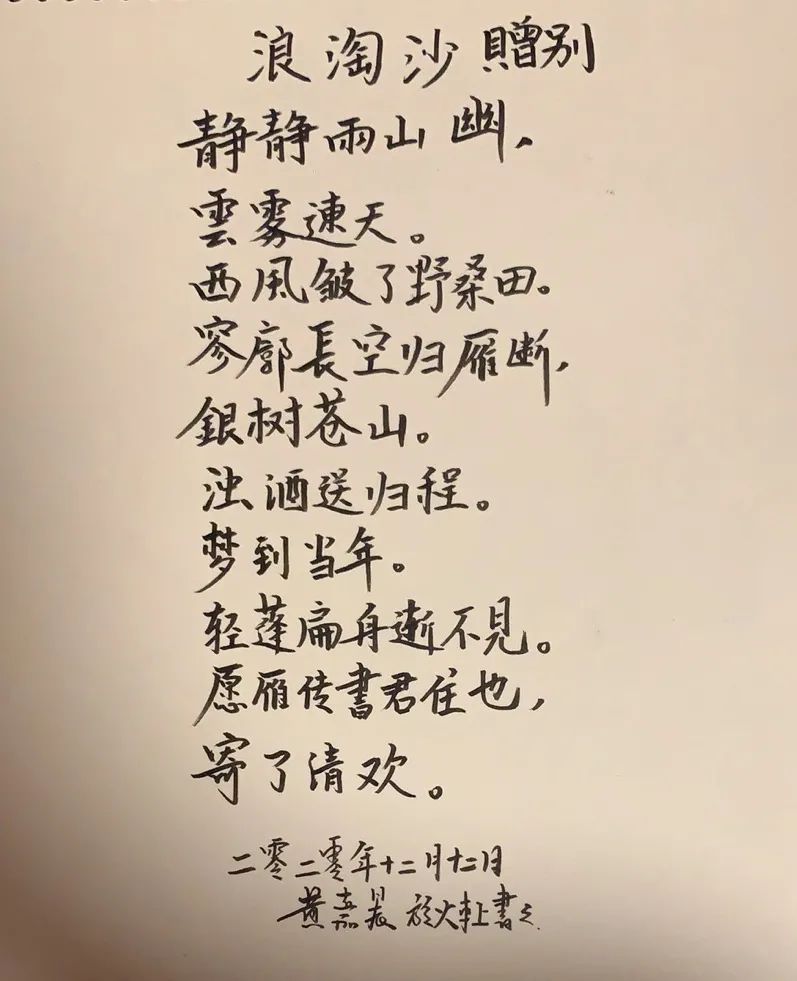 浪淘沙 贈别
静静雨山幽,
雲雾連天。
西風皱了野桑田。
寥廓長空归雁断,
銀树苍山。
浊酒送归程。
梦到当年。
轻蓬扁舟逝不見。
愿雁传書君住也,
寄了清欢。
二零二零年十二月十二日
黄嘉晨 於火車上書之.